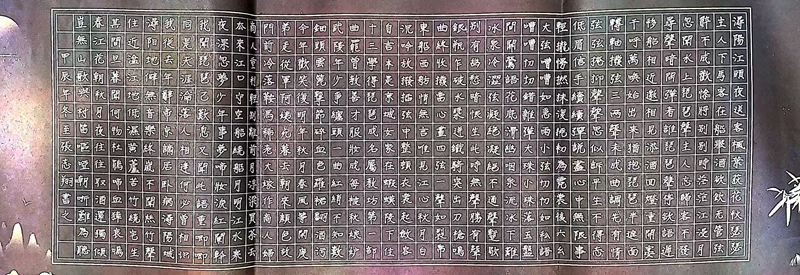 潯陽江頭夜送客楓葉荻花秋瑟瑟
主人下馬客在船舉酒欲飲無管弦
醉不成歡慘將別別時茫茫江浸月
忽聞水上琵琶聲主人忘歸客不發
尋聲暗問彈者誰琵琶聲停欲語遲
移船相近邀相見添酒回燈重開宴
千呼萬喚始出來猶抱琵琶半遮面
轉軸撥弦三兩聲未成曲調先有情
弦弦掩抑聲聲思似訴平生不得志
低眉信手續續彈說盡心中無限事
輕攏慢撚抹復挑初為霓裳後六幺
大弦嘈嘈如急雨小弦切切如私語
嘈嘈切切錯雜彈大珠小珠落玉盤
間關鶯語花底滑幽咽泉流冰下難
冰泉冷澀弦凝絕凝絕不通聲暫歇
別有幽愁暗恨生此時無聲勝有聲
銀瓶乍破水漿迸鐵騎突出刀槍鳴
曲終收撥當心畫四弦一聲如裂帛
東船西舫悄無言唯見江心秋月白
沉吟放撥插弦中整頓衣裳起斂容
自言本是京城女家在蝦蟆陵下住
十三學得琵琶成名屬教坊第一部
曲罷曾教善才服妝成每被秋娘妒
武陵年少爭纏頭一曲紅綃不知數
鈿頭銀篦擊節碎血色羅裙翻酒污
今年歡笑復明年秋月春風等閒度
弟走從軍阿姨死暮去朝來顏色故
門前冷落鞍馬稀老大嫁作商人婦
商人重利輕別離前月浮梁買茶去
去來江口守空船繞船月明江水寒
夜深忽夢少年事夢啼妝淚紅闌干
我聞琵琶已歎息又聞此語重唧唧
同是天涯淪落人相逢何必曾相識
我從去年辭帝京謫居臥病潯陽城
潯陽地僻無音樂終歲不聞絲竹聲
住近湓江地低濕黃蘆苦竹繞宅生
其間旦暮聞何物杜鵑啼血猿哀鳴
春江花朝秋月夜往往取酒還獨傾
豈無山歌與村笛嘔啞嘲哳難為聽
甲辰年冬張志翔書之